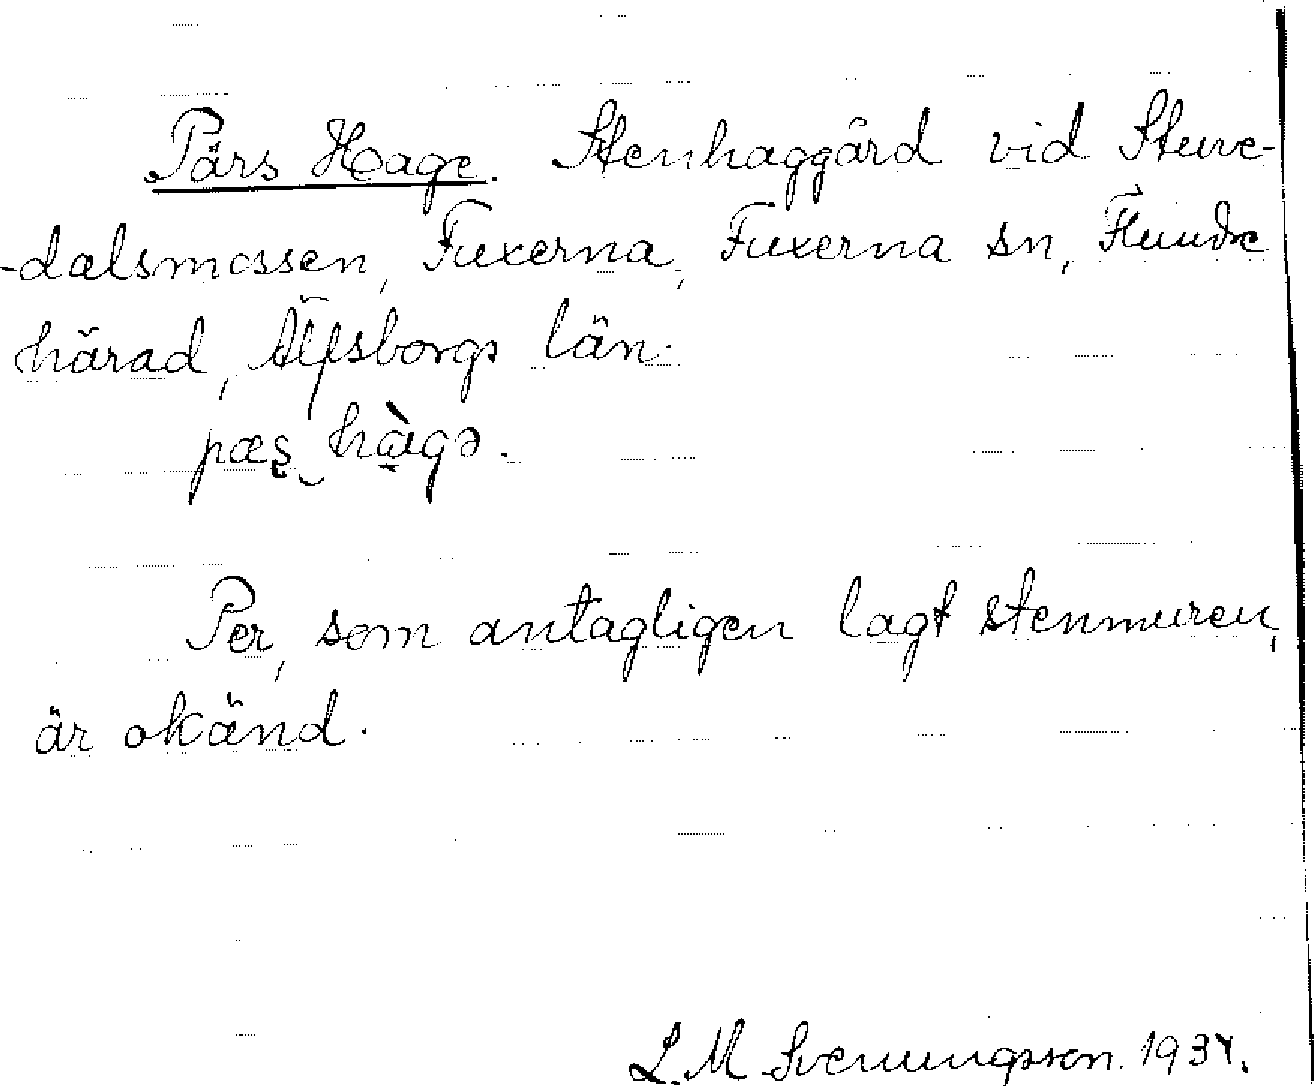 Pärs Hage. Stenhaggård vid Sture-
-dalsmossen, Fuxerna, Fuxerna sn, Flundre
härad, Älfsborgs län.
pæʂ‿hàgə.
Per, som antagligen lagt stenmuren,
är okänd.
L. M Svenungsson. 1934.